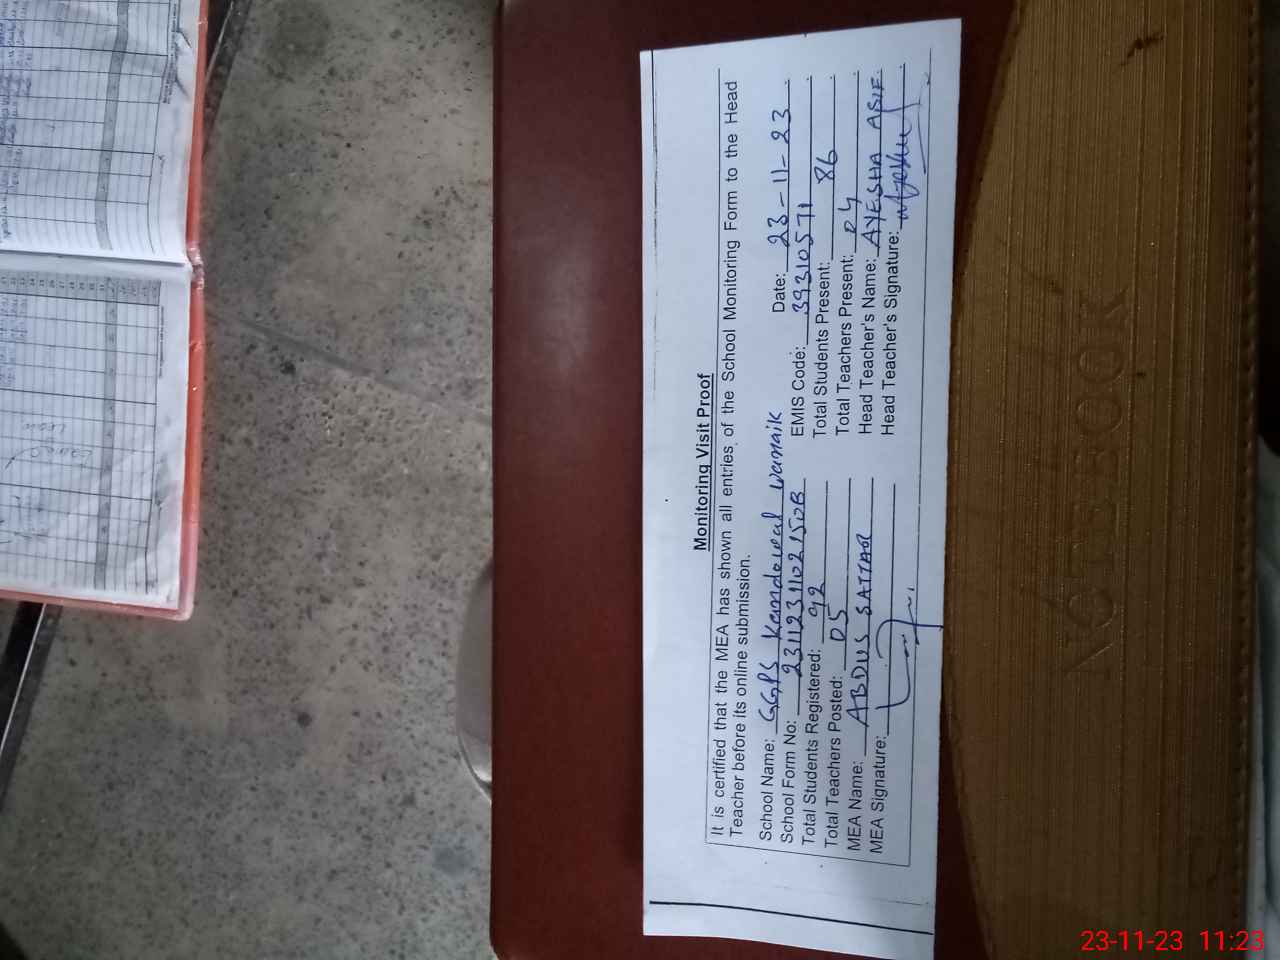 Monitoring Visit Proof
It is certified that the MEA has shown all entries of the School Monitoring Form to the Head
Teacher before its online submission.
School Name: GGPS Kandowal Warraik Date: 23-11-23
School Form No: 231123110215OB EMIS Code: 39310571
Total Students Registered: 92 Total Students Present: 86
Total Teachers Posted: 05 Total Teachers Present: 04
MEA Name: ABDUS SATTAR Head Teacher's Name: AYESHA ASIF
MEA Signature: Head Teacher's Signature:
NOTEBOOK
23-11-23 11:23